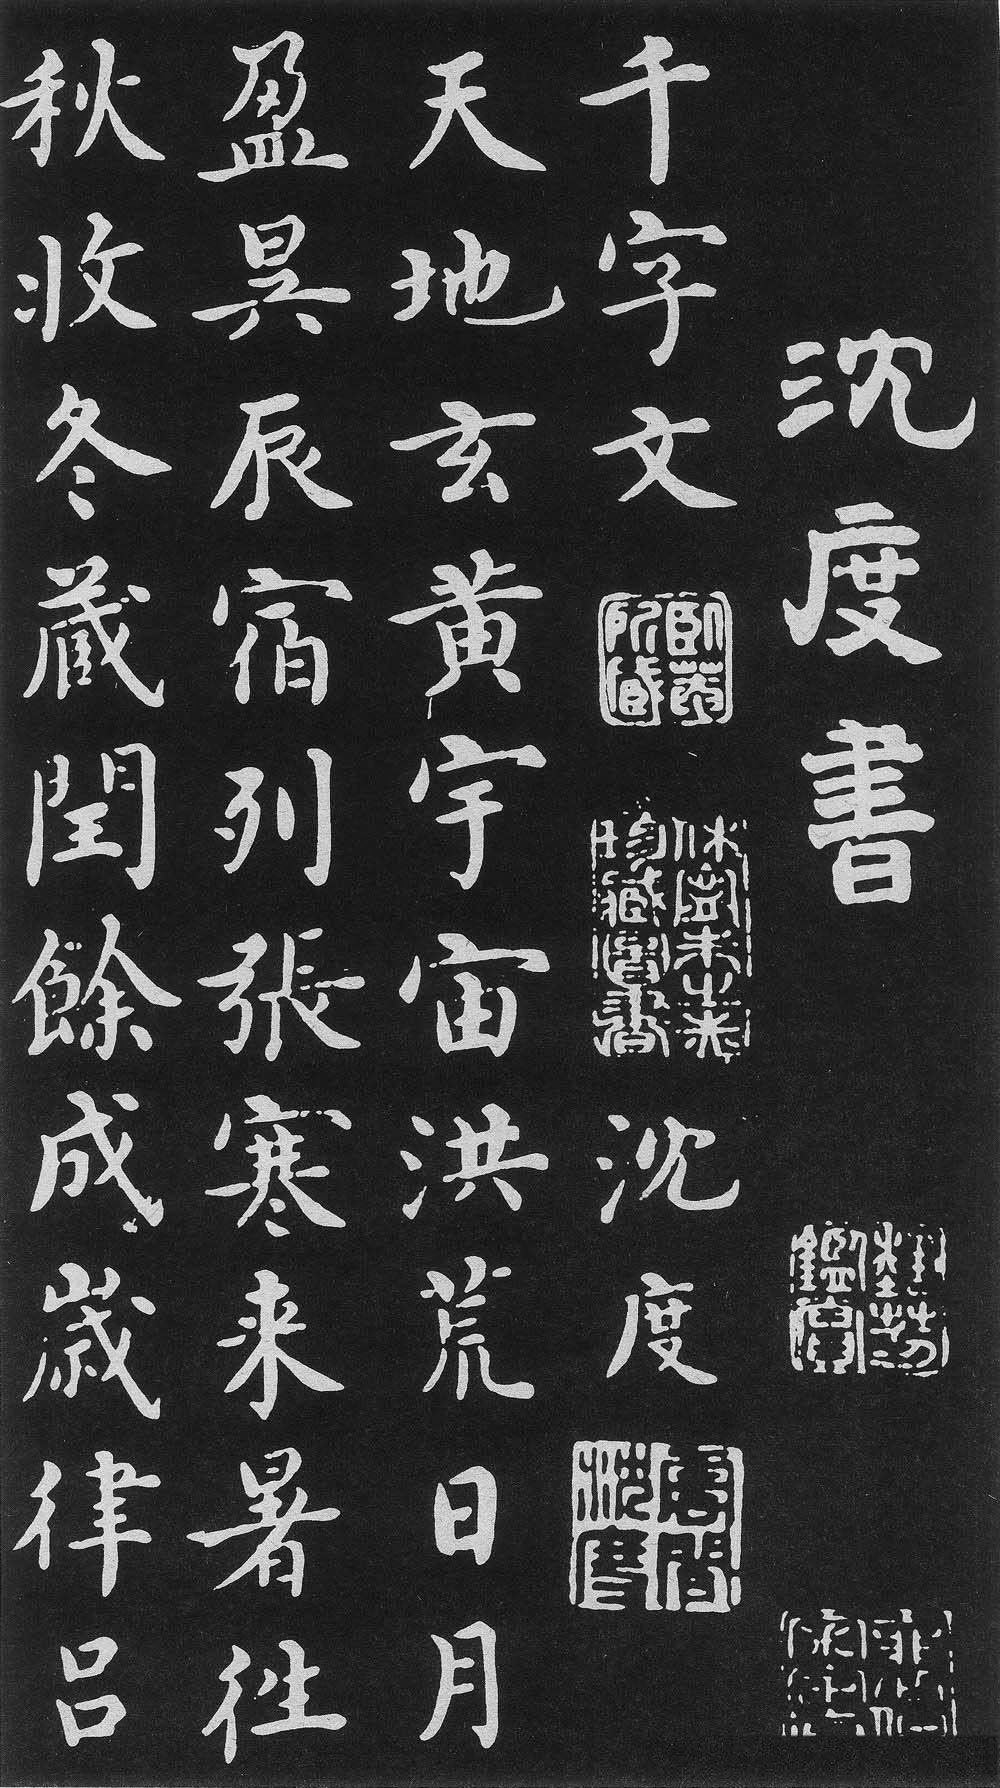 沈度書
千字文 沈度
天地玄黄宇宙洪荒日月
盈昃辰宿列張寒来暑往
秋收冬蔵閏餘成歳律呂